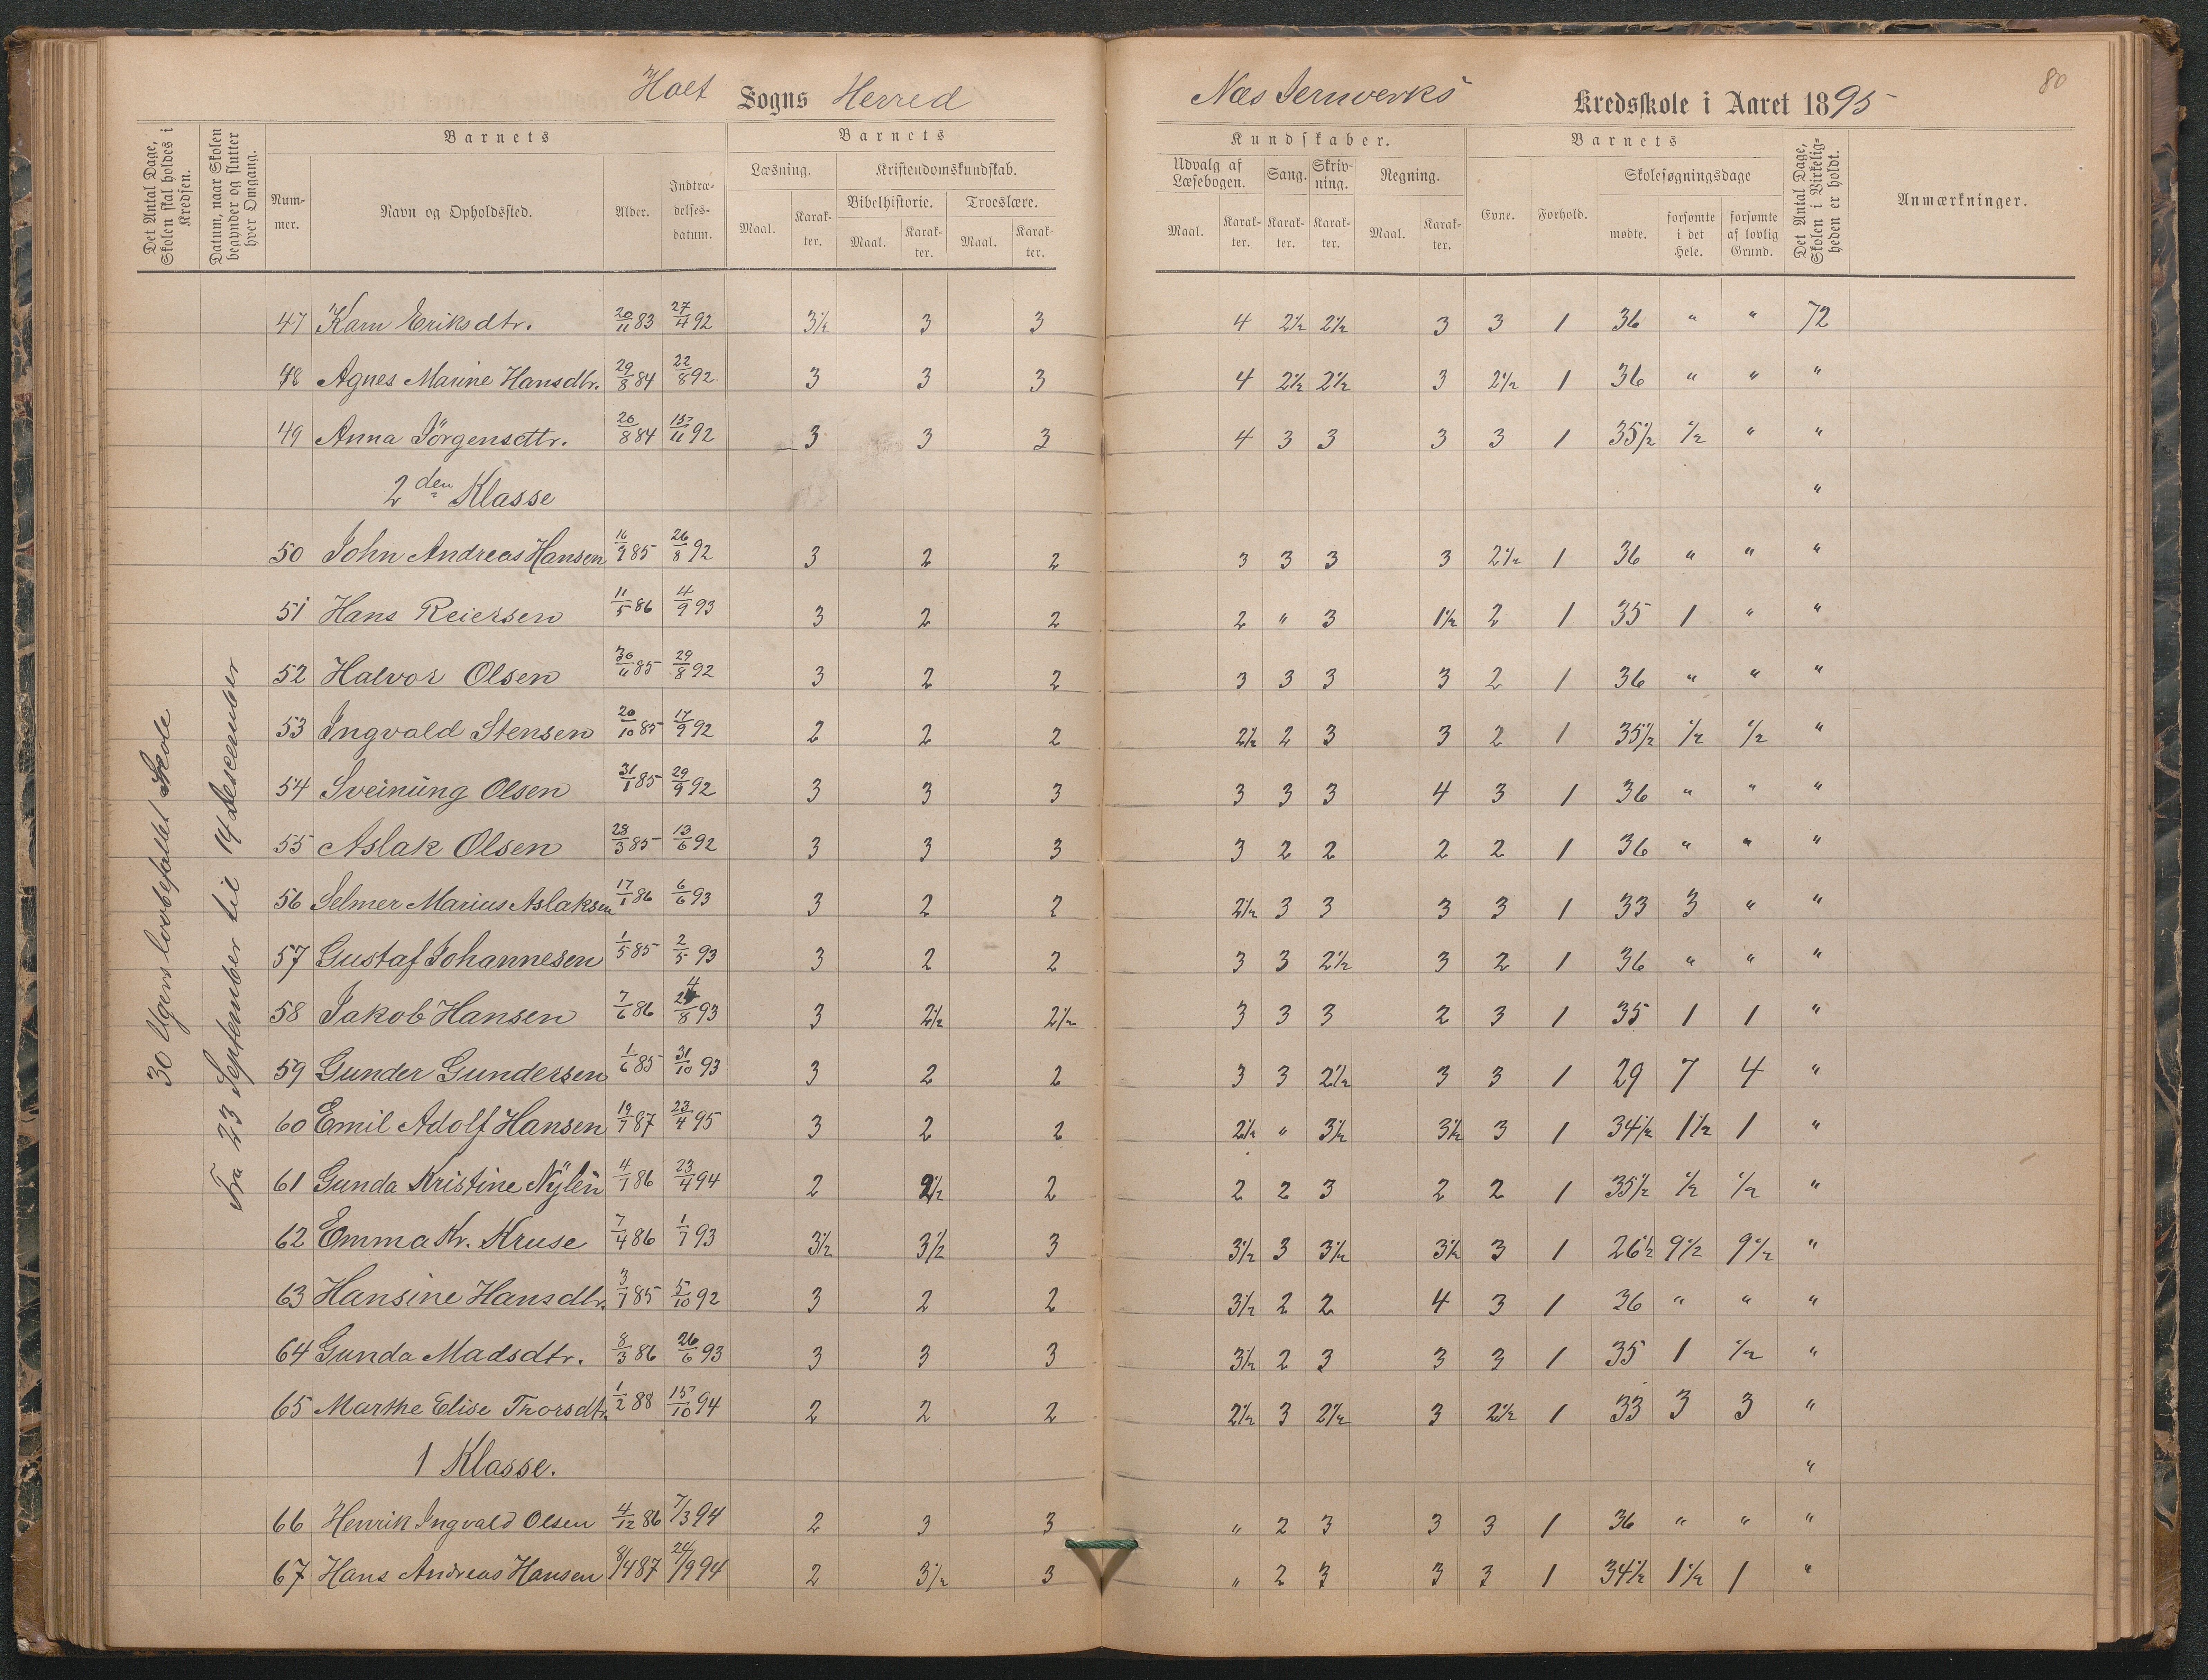 Holt Sogns Herred
Næs Jernverks Kredsskole i Aaret 1895
80
Det Antal Dage, Skolen skal holdes i Kredsen.
Datum, naar Skolen begynder og slutter hver Omgang.
Barnets
Barnets
Kundskaber.
Barnets
Det Antal Dage, Skolen i Virkeligheden er holdt.
Anmærkninger.
Nummer.
Navn og Opholdssted.
Alder.
Indtrædelsesdatum.
Læsning.
Kristendomskundskab.
Bibelhistorie.
Troeslære.
Udvalg af Læsebogen.
Sang.
Skrivning.
Regning.
Evne.
Forhold.
Skolesøgningsdage
mødte.
forsømte i det Hele.
forsømte af lovlig Grund.
Maal. Karakter. Maal. Karakter. Maal. Karakter. Maal. Karakter. Karakter. Karakter. Maal. Karakter.
30 Ugers lovbefalet Skole
Fra 23 September til 14 Desember
47 Karn Eriksdtr. 20/11 83 27/4 92 3½ 3 3 4 2½ 2½ 3 3 1 36 " " 72
48 Agnes Marine Hansdtr. 29/8 84 22/8 92 3 3 3 4 2½ 2½ 3 2½ 1 36 " " "
49 Anna Jörgensdtr. 26/8 84 15/11 92 3 3 3 4 3 3 3 3 1 35½ ½ " "
2den Klasse "
50 John Andreas Hansen 16/9 85 26/8 92 3 2 2 3 3 3 3 2½ 1 36 " " "
51 Hans Reiersen 11/5 86 4/9 93 3 2 2 2 " 3 1½ 2 1 35 1 " "
52 Halvor Olsen 30/11 85 29/8 92 3 2 2 3 3 3 3 2 1 36 " " "
53 Ingvald Stensen 20/10 85 17/9 92 2 2 2 2½ 2 3 3 2 1 35½ ½ ½ "
54 Sveinung Olsen 31/1 85 29/9 92 3 3 3 3 3 3 4 3 1 36 " " "
55 Aslak Olsen 28/3 85 13/6 92 3 3 3 3 2 2 2 2 1 36 " " "
56 Selmer Marius Aslaksen 17/1 86 6/6 93 3 2 2 2½ 3 3 3 3 1 33 3 " "
57 Gustaf Johannesen 1/5 85 2/5 93 3 2 2 3 3 2½ 3 2 1 36 " " "
58 Jakob Hansen 7/6 86 24/8 93 3 2½ 2½ 3 3 3 2 3 1 35 1 1 "
59 Gunder Gundersen 1/6 85 31/10 93 3 2 2 3 3 2½ 3 3 1 29 7 4 "
60 Emil Adolf Hansen 19/7 87 23/4 95 3 2 2 2½ " 3½ 3½ 3 1 34½ 1½ 1 "
61 Gunda Kristine Nylén 4/7 86 23/4 94 2 2½ 2 2 2 3 2 2 1 35½ ½ ½ "
62 Emma Kr. Kruse 7/4 86 1/7 93 3½ 3½ 3 3½ 3 3½ 3½ 3 1 26½ 9½ 9½ "
63 Hansine Hansdtr. 3/7 85 5/10 92 3 2 2 3½ 2 2 4 3 1 36 " " "
64 Gunda Madsdtr. 8/3 86 26/6 93 3 3 3 3½ 2 3 3 3 1 35 1 ½ "
65 Marthe Elise Thorsdtr. 1/2 88 15/10 94 2 2 2 2½ 3 2½ 3 2½ 1 33 3 3 "
1 Klasse. "
66 Henrik Ingvald Olsen 4/12 86 7/3 94 2 3 3 " 2 3 3 3 1 36 " " "
67 Hans Andreas Hansen 8/4 87 24/9 94 2 3½ 3 " 2 3 3 3 1 34½ 1½ 1 "